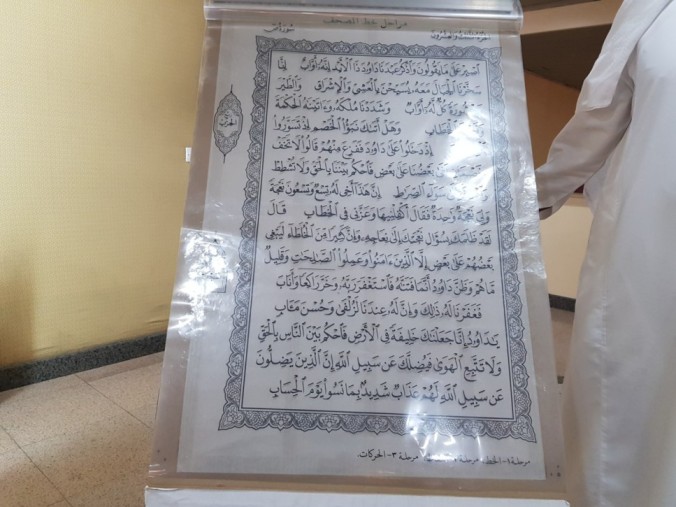 مراحل خط المصحف
سورة ص
الجزء الثالث والعشرون
اصبر على ما يقولون واذكر عبدنا داوود ذا الأيد إنه أواب إنا
سخرنا الجبال معه يسبحن بالعشي والإشراق والطير
كل له أواب وشددنا ملكه وءاتينه الحكمة
الخطاب وهل أتىك نبؤا الخصم إذ تسوروا
إذ دخلوا على داود ففزع منهم قالوا لا تخف
بعضنا على بعض فاحكم بيننا بالحق ولا تشطط
الصرط إن هذا أخي له تسع وتسعون نعجة
ولي نعجة وحدة فقال أكفلنيها وعزني في الخطاب قال
لقد ظلمك بسؤال نعجتك إلى نعاجه وإن كثيرا من الخلطاء ليبغي
بعضهم على بعض إلا الذين ءامنوا وعملوا الصالحت وقليل
ما هم وظن داود أنما فتنه فاستغفر ربه وخر راكعا وأناب
فغفرنا له ذلك وإن له عندنا لزلفى وحسن مءاب
يداود إنا جعلنك خليفة في الأرض فاحكم بين الناس بالحق
ولا تتبع الهوى فيضلك عن سبيل الله إن الذين يضلون
عن سبيل الله لهم عذاب شديد بما نسوا يوم الحساب
الحزب
مرحلة ١- الخط مرحلة مرحلة ٣- الحركات.